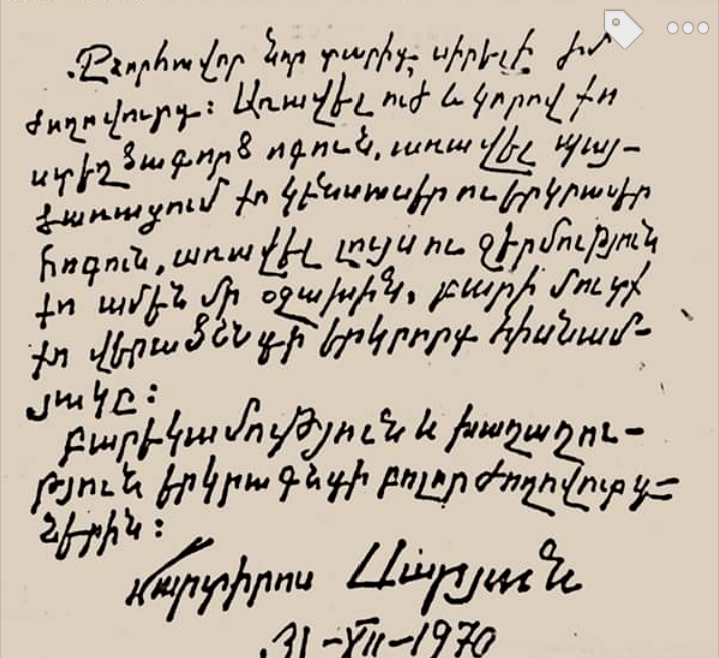 Շնորհավոր նոր տարիդ, սիրելի իմ
ժողովուրդ։ Առավել ուժ և կորով քո
ստեղծագործ ոգուն, առավել պայ-
ծառացում քո կենսասեր ու երկրասեր
հոգուն, առավել լույս ու ջերմություն
քո ամեն մի օջախին, բարի մուտք
քո վերածննդի երկրորդ հիսնամ-
յակը։
Բարեկամություն և խաղաղու-
թյուն երկրագնդի բոլոր ժողովուրդ-
ներին։
Մարտիրոս Սարյան
31-XII-1970